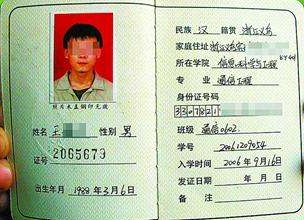 照片未盖钢印无效
姓名 王 性别 男
证号 2065679
出生年月 1988年3月6日
民族 汉 籍贯 浙江义乌
家庭住址 浙江义乌
所在学院 信息科学与工程
专业 通信工程
身份证号码
3307821
班级 通信0602
学号 2061209054
入学时间 2006年9月16日
发证日期 年 月 日
备注